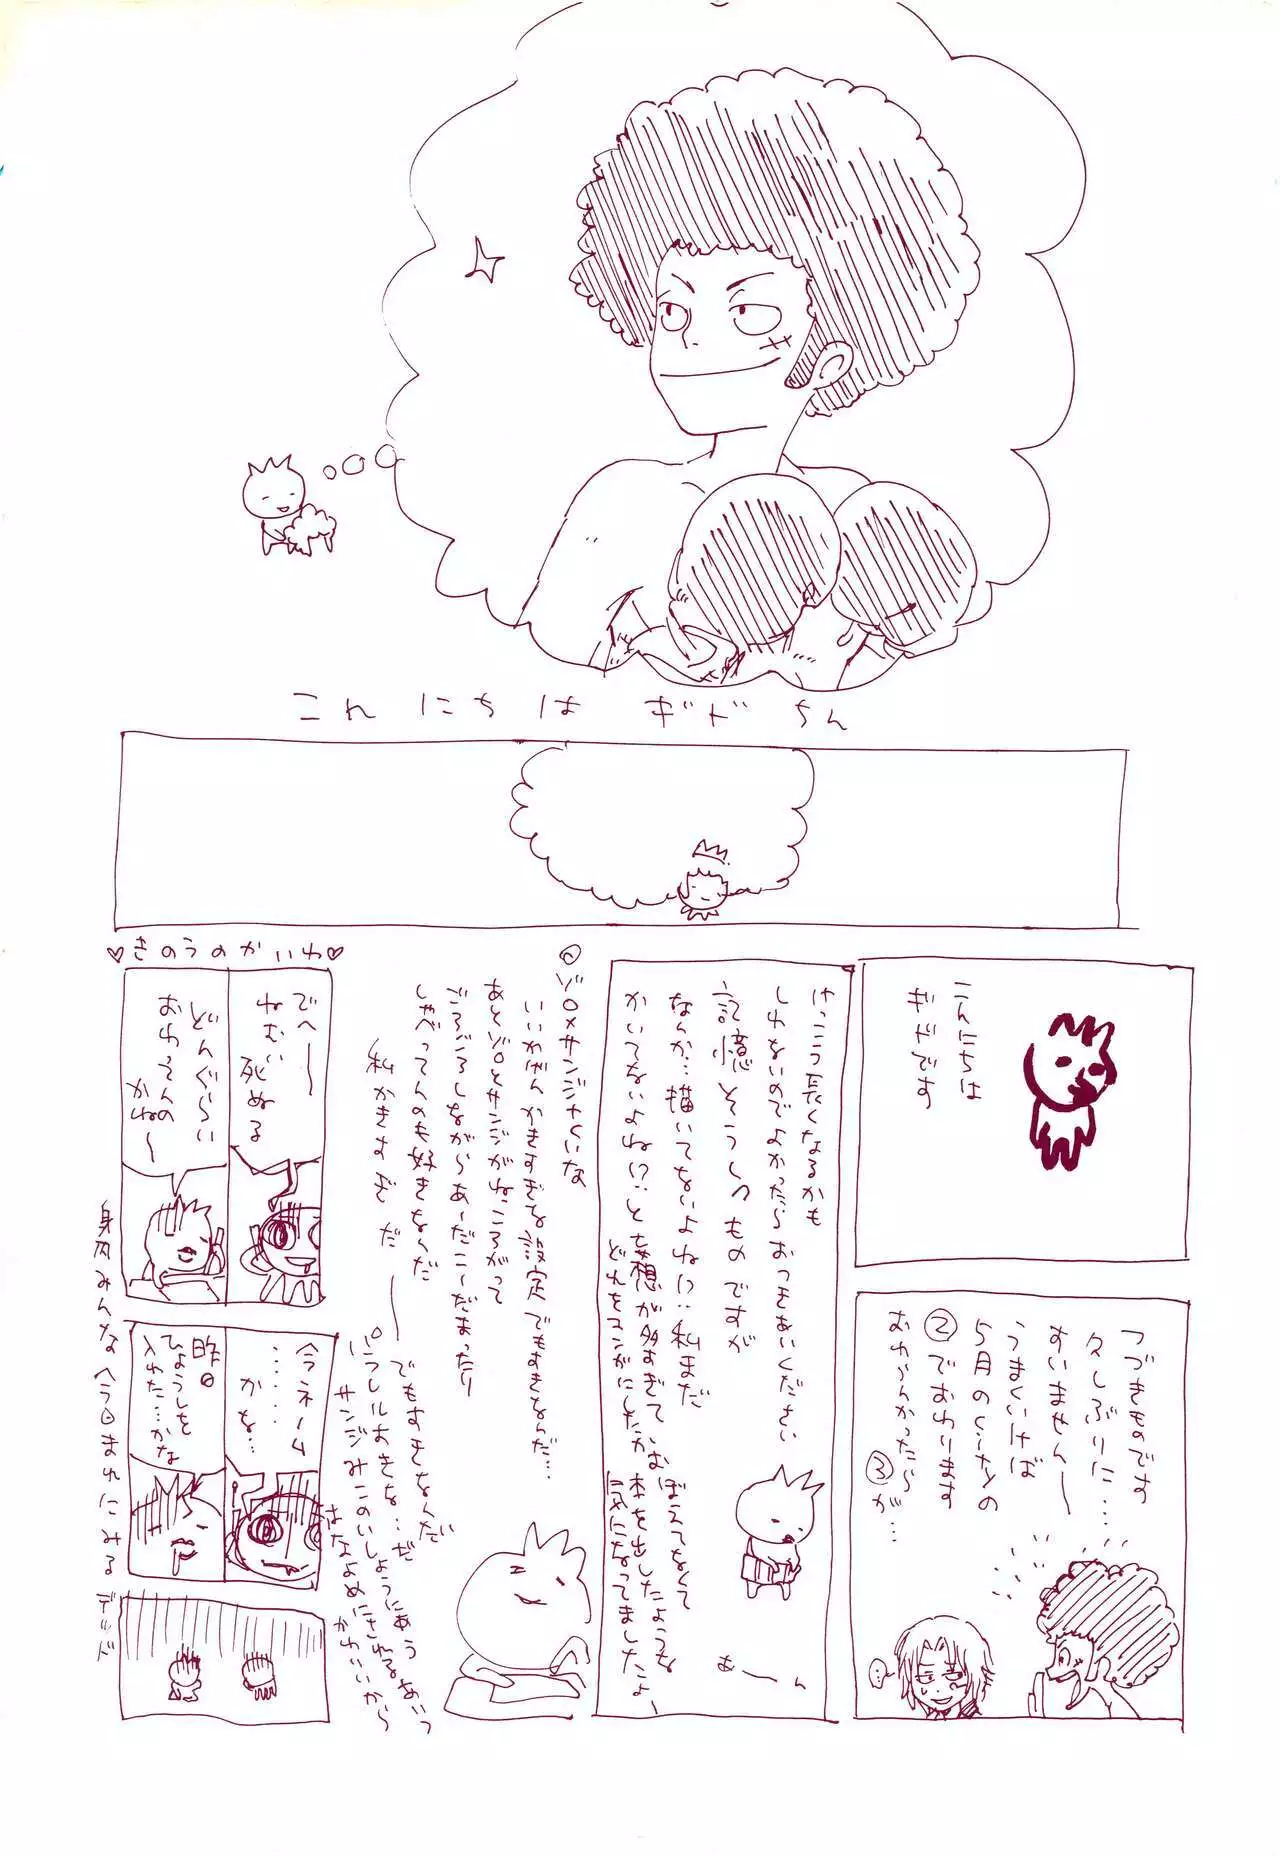 こんにちは ギドちん
こんにちは
ギドです
つづきものです
久しぶりに…
すいません――
うまくいけば
5月のくらいの
②でおわります
おわらんかったら
③が…
…
けっこう長くなるかも
しれないのでよかったらおつきあいください
記憶そうしつものですが
なんか…描いてないよね!?…私まだ
かいてないよね!?と妄想が多すぎておぼえてなくて
どれをマンガにしたか本を出したような
気になってましたよー
あーん
ゾロ×サンジ×くいな
いいかげんかきすぎな設定でもすきなんだ…
あとゾロとサンジがねころがって
ごろごろしながらあーだこーだまったり
しゃべってんのも好きなんだ
私かきすぎだ――
でもすきなんだい
パラレルおきな…だ
サンジみこのいしょうにあう
はなよめにされるあいつ
かわいいから
♡きのうのかいわ♡
でへ――
ねむい死ぬる
どんぐらい
おわってんの
かね〜
今ネーム
………
かな…
昨日
ひょうしを
入れた…かな
身内みんなヘラ日まれにみるデッド